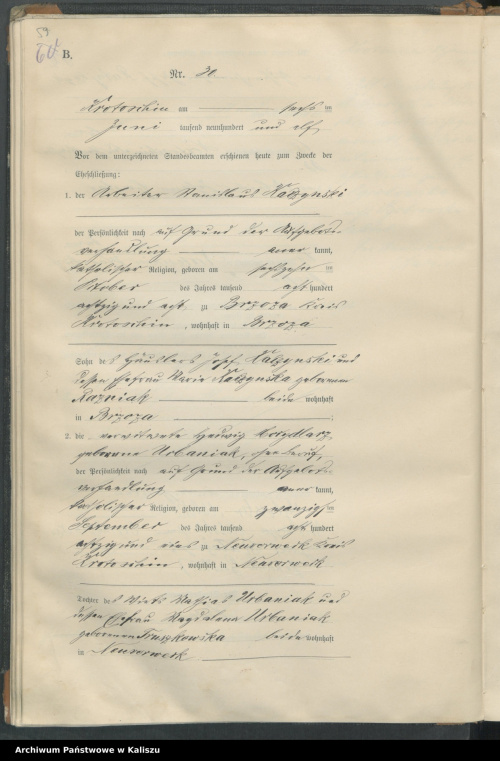 59
B.
Nr. 30
Krotoschin am sechs ten
Juni tausend neunhundert und elf
Vor dem unterzeichneten Standesbeamten erschienen heute zum Zwecke der
Eheschließung:
1. der Arbeiter Stanislaus
der Persönlichkeit nach auf Grund der Aufgebots-
verhandlung kannt,
katholischer Religion, geboren am sechszehn ten
Oktober des Jahres tausend acht hundert
achtzig und acht zu Brzoza Kreis
Krotoschin, wohnhaft in Brzoza
Sohn des Häuslers Josef und
dessen Ehefrau Maria geborenen
beide wohnhaft
in Brzoza ;
2. die verwitwete Hedwig
geborene Urbaniak,
der Persönlichkeit nach auf Grund der Aufgebots-
verhandlung kannt,
katholischer Religion, geboren am zwanzigs ten
September des Jahres tausend acht hundert
achtzig und eins zu Neuvorwerk Kreis
Krotoschin, wohnhaft in Neuvorwerk
Tochter des Wirts Mathias Urbaniak und
dessen Ehefrau Magdalena Urbaniak
geborenen beide wohnhaft
in Neuvorwerk
Archiwum Państwowe w Kaliszu